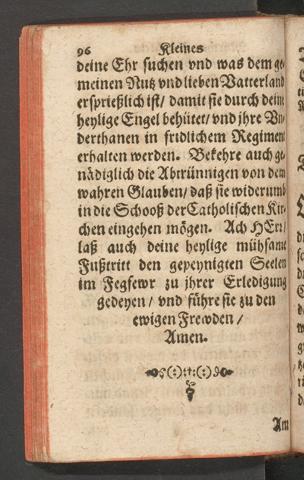 96 Kleines
deine Ehr suchen vnd was dem ge⸗
meinen Nutz vnd lieben Vatterland
ersprießlich ist/ damit sie durch deine
heylige Engel behütet/ vnd jhre Vn⸗
derthanen in fridlichem Regiment
erhalten werden. Bekehre auch ge⸗
nädiglich die Abtrünnigen von dem
wahren Glauben/ daß sie widerumb
in die Schooß der Catholischen Kir⸗
chen eingehen mögen. Ach HErr/
laß auch deine heylige mühsame
Fußtritt den gepeynigten Seelen
im Fegfewr zu jhrer Erledigung
gedeyen/ vnd führe sie zu den
ewigen Frewden/
Amen.
Am